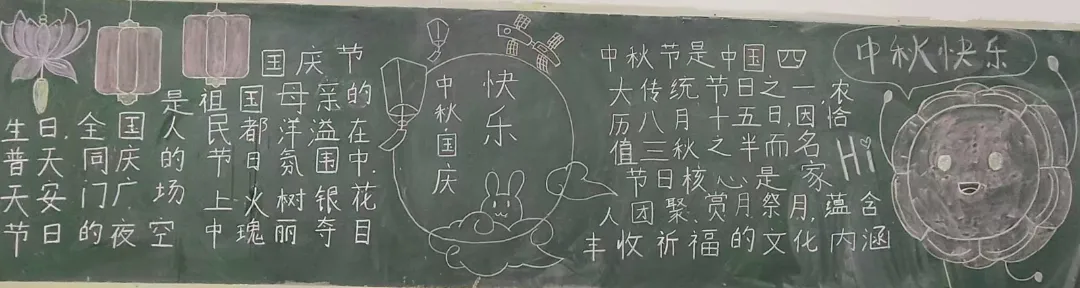 国庆节
是祖国母亲的
生日,全国人民都洋溢在
普天同庆的节日氛围中.
天安门广场上火树银花
节日的夜空中瑰丽夺目
中秋·国庆
快乐
中秋节是中国四
大传统节日之一,农
历八月十五日,因恰
值三秋之半而名
节日核心是家
人团聚、赏月祭月,蕴含
丰收祈福的文化内涵
中秋快乐
Hi